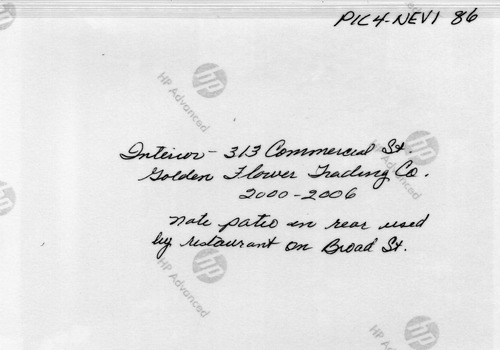 PIC4-NEV1 86
hp
HP Advanced
hp
HP Advanced
Interior - 313 Commercial St.
Golden Flower Trading Co.
2000-2006
note patio in rear used
by restaurant on Broad St.
hp
HP Advanced
hp
HP Advanced